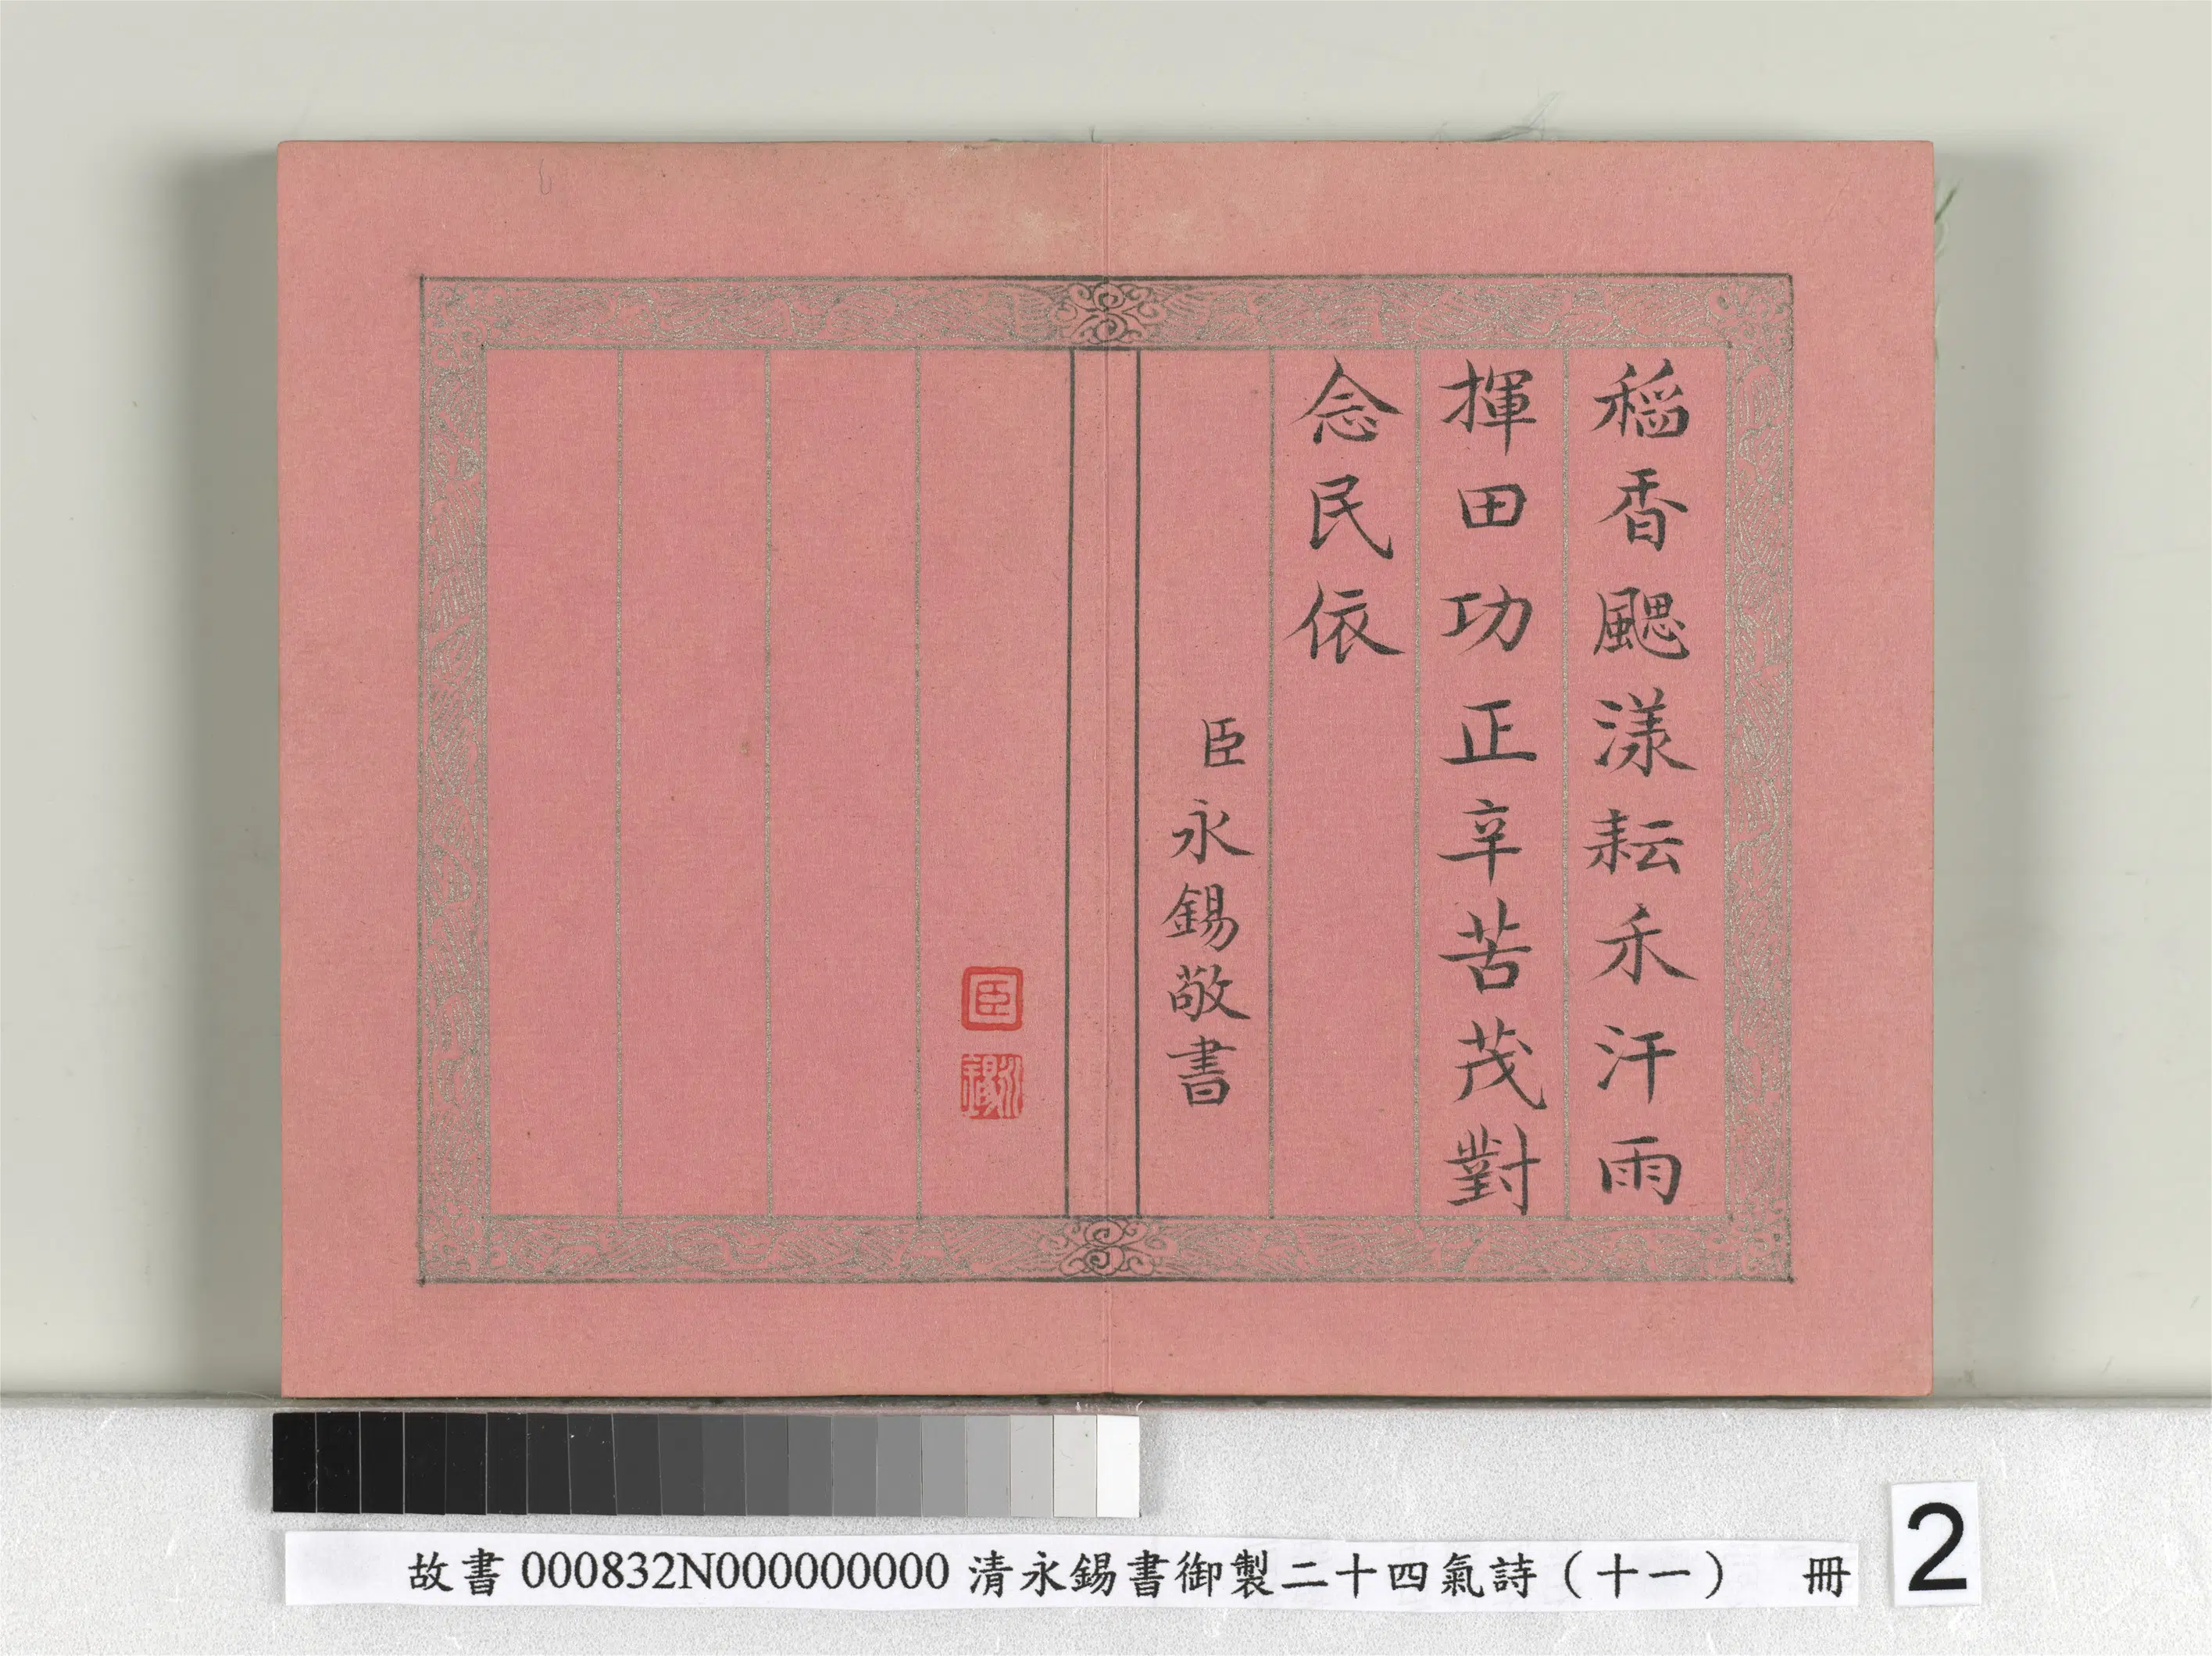 稻香颸漾耘禾汗雨
揮田功正辛苦茂對
念民依
臣永錫敬書
臣
永錫
故書 000832N000000000 清永錫書御製二十四氣詩（十一） 冊
2